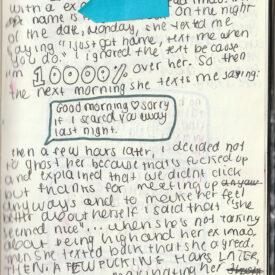 with a ex
name is
On the night
of the date, Monday, she texted me
saying "I just got home, text me when
you do." I ignored the text because
im 10000% over her. So then
the next morning she texts me saying:
Good morning ♡ sorry
if I scared you away
last night.
then a few hours later, I decided not
to ghost her because that's fucked up
and explained that we didnt click
but thanks for meeting up anyway
anyways and to make her feel
better about herself I said that "she
seemed nice"... when she's not talking
about being high and her ex. imao,
then she texted back that she agreed.
THEN, A FEW FUCKING HOURS LATER,
her